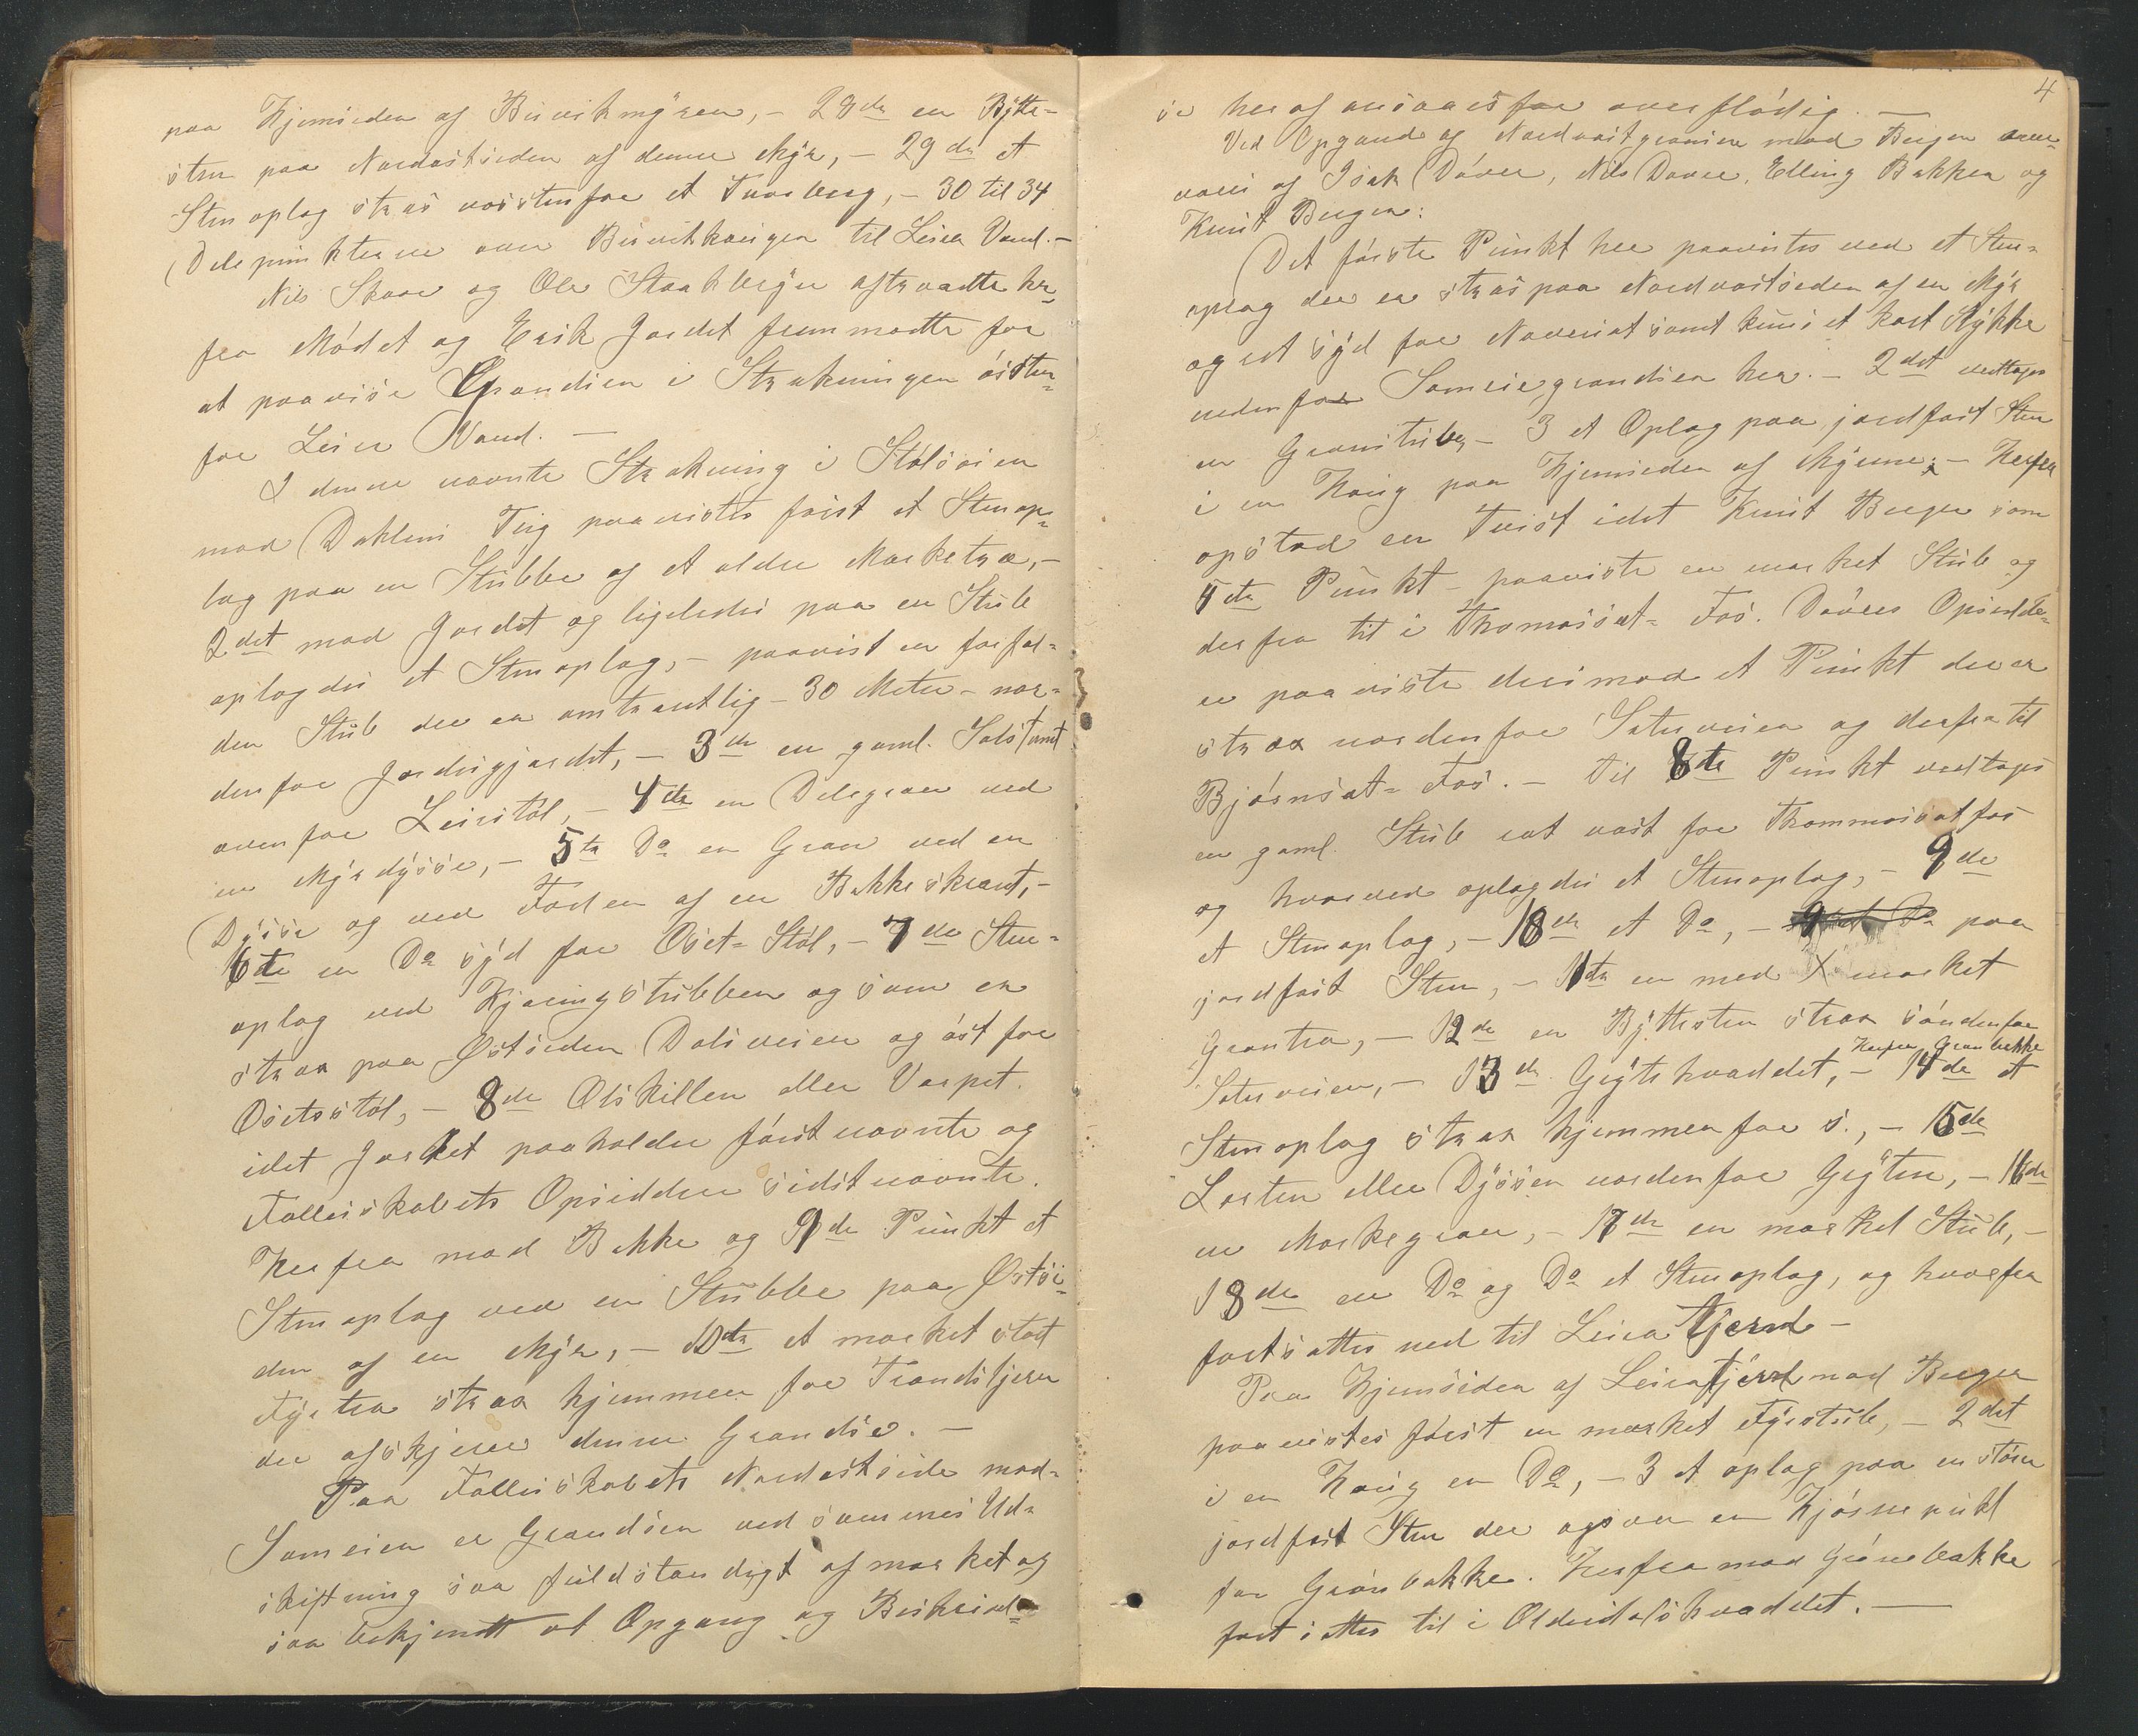 paa Hjemsiden af Buvikmyren, - 28de en Bytte-
sten paa Nordøstsiden af denne Myr, - 29de et
Stenoplag strax vestenfor et Furuberg, - 30 til 34
Delepunkterne over Buvikhaugen til Leira Vand. -
Nils Skare og Ole Staakberger aftraadte her-
fra Mødet og Erik Jordet fremmødte for
at paavise Grændsen i Strækningen østen-
for Leira Vand. -
I denne nævnte Strækning i Stølsøien
mod Dahlens Teig paavistes først et Stenop-
lag paa en Stubbe af et ældre Merketræ, -
2det mod Jordet og ligeledes paa en Stub
oplagdes et Stenoplag, - paavist en forfal-
den Stub der er omtrentlig - 30 Meter - nor-
denfor Jordesgjerdet, - 3de en gaml. Solstamt
ovenfor Leirstøl, - 4de en Delegran ved
en Myrdysse, - 5te Do en Gran ved en
Dysse og ved Foden af en Bakkeskrænt, -
6te en Do syd for Oset-Støl, - 7de Sten-
oplag ved Kjæringstubben og som er
strax paa Østsiden Dalsveien og øst for
Osetsstøl, - 8de Olskillen eller Varpet.
idet Jordet paaholder førstnævnte og
Fælleskabets Opsiddere sidstnævnte.
Herfra mod Bakke og 9de Punkt et
Stenoplag ved en Stubbe paa Østsi-
den af en Myr, - 10de et merket stort
Fyrtræ strax hjemmen for Trondstjern
der afskjerer denne Grændse. -
Paa Fælleskabets Nordøstside mod
Sameien er Grændsen ved sammes Ud-
skiftning saa fuldstændigt afmerket og
saa bekjendt at Opgang og Beskriv-
4
se heraf ansaaes for overflødig. -
Ved Opgand af Nordvestgrænsen mod Berger over-
vær af Isak Døvre, Nils Døvre, Elling Bakken og
Knut Berger:
Det første Punkt her paavistes ved et Sten-
oplag der er strax paa Nordvestsiden af en Myr
og ret syd for Naverset samt kuns et kort Stykke
nedenfor Sameiegrændsen her. - 2det vedtages
en Granstub, - 3 et Oplag paa jordfast Sten
i en Haug paa Hjemsiden af Myrene, - Herfra
opstod en Tvist idet Knut Berger som
4de Punkt - paaviste en merket Stub og
derfra til i Thomasset-Fos. Døvres Opsidde-
re paaviste derimod et Punkt der er
strax nordenfor Seterveien og derfra til
Bjørnset-Fos. - Til 8de Punkt vedtages
en gaml. Stub ret vest for Thommassetfos
og hvorved oplagdes et Stenoplag, - 9de
et Stenoplag, - 10de et Do, - paa
jordfast Sten, - 11te en med X merket
Grantræ, - 12de en Byttesten strax søndenfor
Seterveien, - 13de Gøytehvæddet, - Herfra Grønbakke 14de et
Stenoplag strax hjemmen for s., - 15de
Lorten eller Dyssen nordenfor Gøyten, - 16de
en Merkegran, - 17de en merket Stub, -
18de en Do og Do et Stenoplag, og hvorfra
fortsættes ned til Leira Tjernd -
Paa Hjemsiden af Leiratjernd mod Berger
paavistes først en merket Fyrstub, - 2det
i en Haug en Do, - 3 et oplag paa en større
jordfast Sten der ogsaa er Hjørnepunkt
for Grønbakke. Herfra mod Grønebakke
fortsættes til i Olderdalshvæddet. -